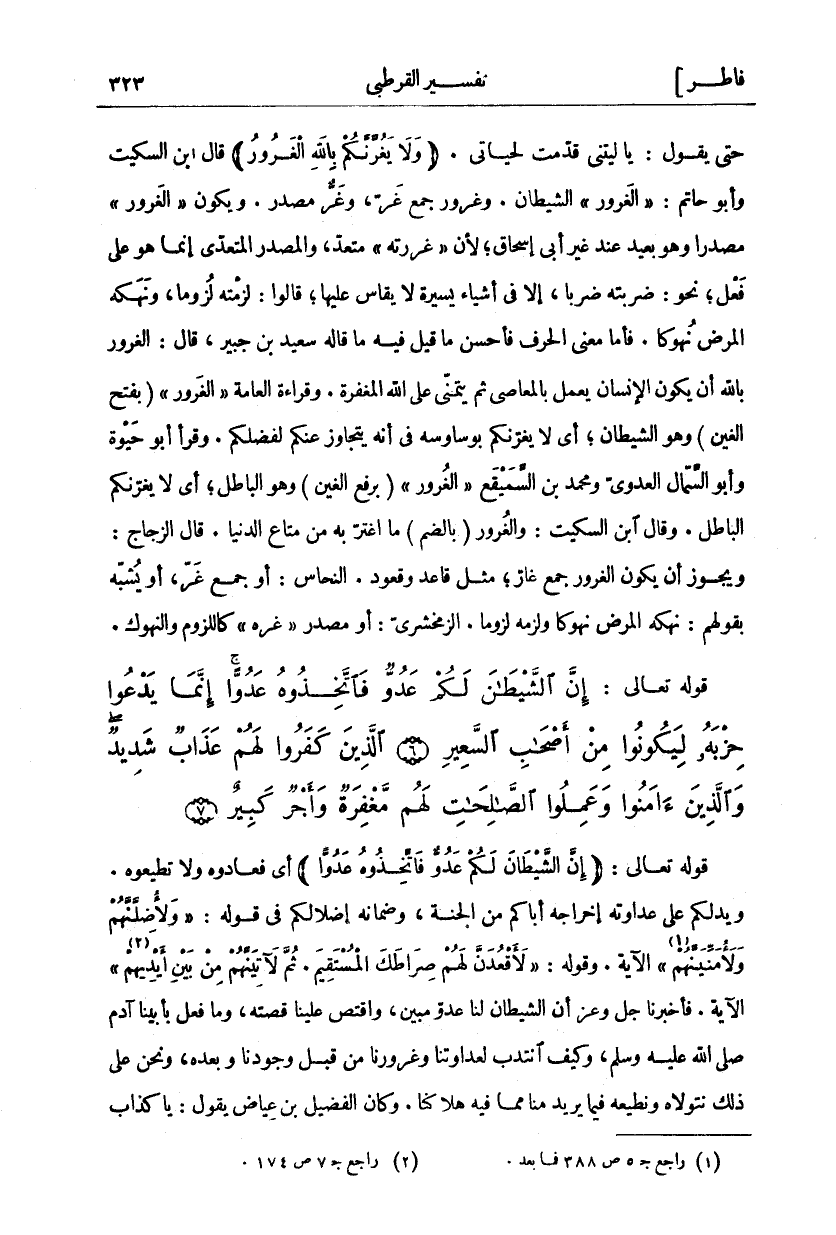 فاطر ] تفسير القرطبى ٣٢٣
حتى يقول : يا ليتنى قدّمت لحياتى . ﴿ وَلَا يَغُرَّنَّكُمْ بِاللهِ الْغَرُورُ ﴾ قال ابن السكيت
وأبو حاتم : « الغَرور » الشيطان . وغرور جمع غَرّ، وغَرٌّ مصدر . ويكون « الغَرور »
مصدرا وهو بعيد عند غير أبى إسحاق؛ لأن « غررته » متعدّ، والمصدر المتعدّى إنما هو على
فَعْل؛ نحو : ضربته ضربا ، إلا فى أشياء يسيرة لا يقاس عليها؛ قالوا : لزمْته لُزوما، ونَهَكه
المرض نُهوكا . فأما معنى الحرف فأحسن ما قيل فيه ما قاله سعيد بن جبير ، قال : الغرور
بالله أن يكون الإنسان يعمل بالمعاصى ثم يتمنّى على الله المغفرة . وقراءة العامة « الغَرور » ( بفتح
الغين ) وهو الشيطان ؛ أى لا يغرّنكم بوساوسه فى أنه يتجاوز عنكم لفضلكم . وقرأ أبو حَيْوة
وأبو السَّمَّال العدوىّ ومحمد بن السَّمَيْقَع « الغُرور » ( برفع الغين ) وهو الباطل؛ أى لا يغرّنكم
الباطل . وقال ٱبن السكيت : والغُرور ( بالضم ) ما اغترّ به من متاع الدنيا . قال الزجاج :
ويجوز أن يكون الغرور جمع غارّ؛ مثل قاعد وقعود . النحاس : أو جمع غَرّ، أو يُشبّه
بقولهم : نهكه المرض نهوكا ولزمه لزوما . الزمخشرىّ : أو مصدر « غره » كاللزوم والنهوك .
قوله تعالى : إِنَّ ٱلشَّيْطَٰنَ لَكُمْ عَدُوٌّ فَٱتَّخِذُوهُ عَدُوًّا ۚ إِنَّمَا يَدْعُوا
حِزْبَهُۥ لِيَكُونُوا مِنْ أَصْحَٰبِ ٱلسَّعِيرِ ۝٦ ٱلَّذِينَ كَفَرُوا لَهُمْ عَذَابٌ شَدِيدٌ ۖ
وَٱلَّذِينَ ءَامَنُوا وَعَمِلُوا ٱلصَّٰلِحَٰتِ لَهُم مَّغْفِرَةٌ وَأَجْرٌ كَبِيرٌ ۝٧
قوله تعالى : ﴿ إِنَّ الشَّيْطَانَ لَكُمْ عَدُوٌّ فَاتَّخِذُوهُ عَدُوًّا ﴾ أى فعادوه ولا تطيعوه .
ويدلكم على عداوته إخراجه أباكم من الجنة ، وضمانه إضلالكم فى قوله : « وَلَأُضِلَّنَّهُمْ
وَلَأُمَنِّيَنَّهُمْ(١) » الآية . وقوله : « لَأَقْعُدَنَّ لَهُمْ صِرَاطَكَ الْمُسْتَقِيمَ . ثُمَّ لَآتِيَنَّهُمْ مِنْ بَيْنِ أَيْدِيهِمْ(٢) »
الآية . فأخبرنا جل وعز أن الشيطان لنا عدوّ مبين، واقتص علينا قصته، وما فعل بأبينا آدم
صلى الله عليه وسلم، وكيف ٱنتدب لعداوتنا وغرورنا من قبل وجودنا وبعده، ونحن على
ذلك نتولاه ونطيعه فيما يريد منا مما فيه هلاكنا . وكان الفضيل بن عياض يقول : يا كذاب
(١) راجع جـ ٥ ص ٣٨٨ فما بعد . (٢) راجع جـ ٧ ص ١٧٤ .